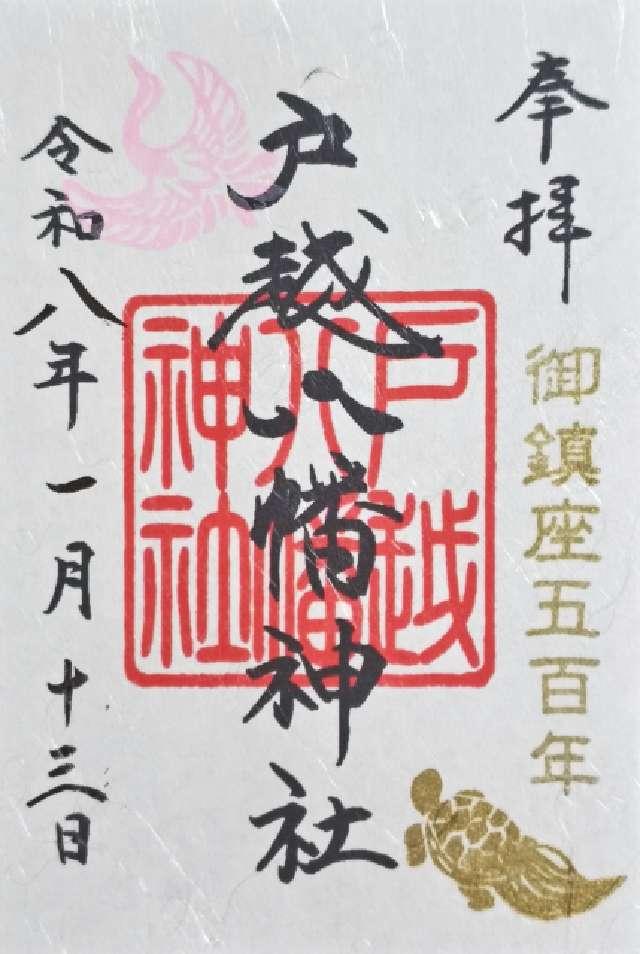 奉拝
御鎮座五百年
戸越八幡神社
戸越
八幡
神社
令和八年一月十三日